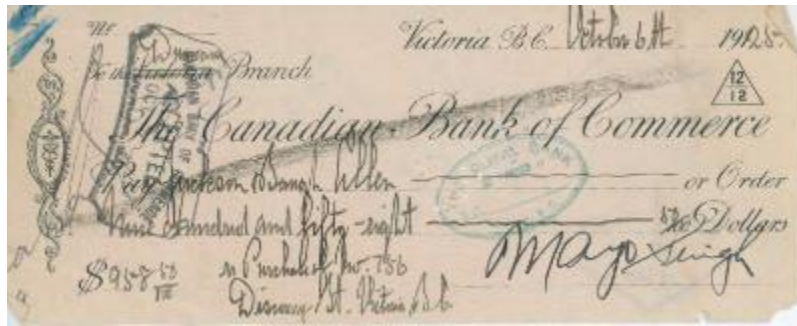 No.
Victoria B.C. October 6th 1925.
To the Victoria Branch
12
12
The Canadian Bank of Commerce
ACCEPTED
Pay Jackson Baugh Allen or Order
Nine Hundred and fifty-eight 50/100 Dollars
$958 50/100
re Purchase of No. 736
Discovery St. Victoria B.C.
Mayo Singh